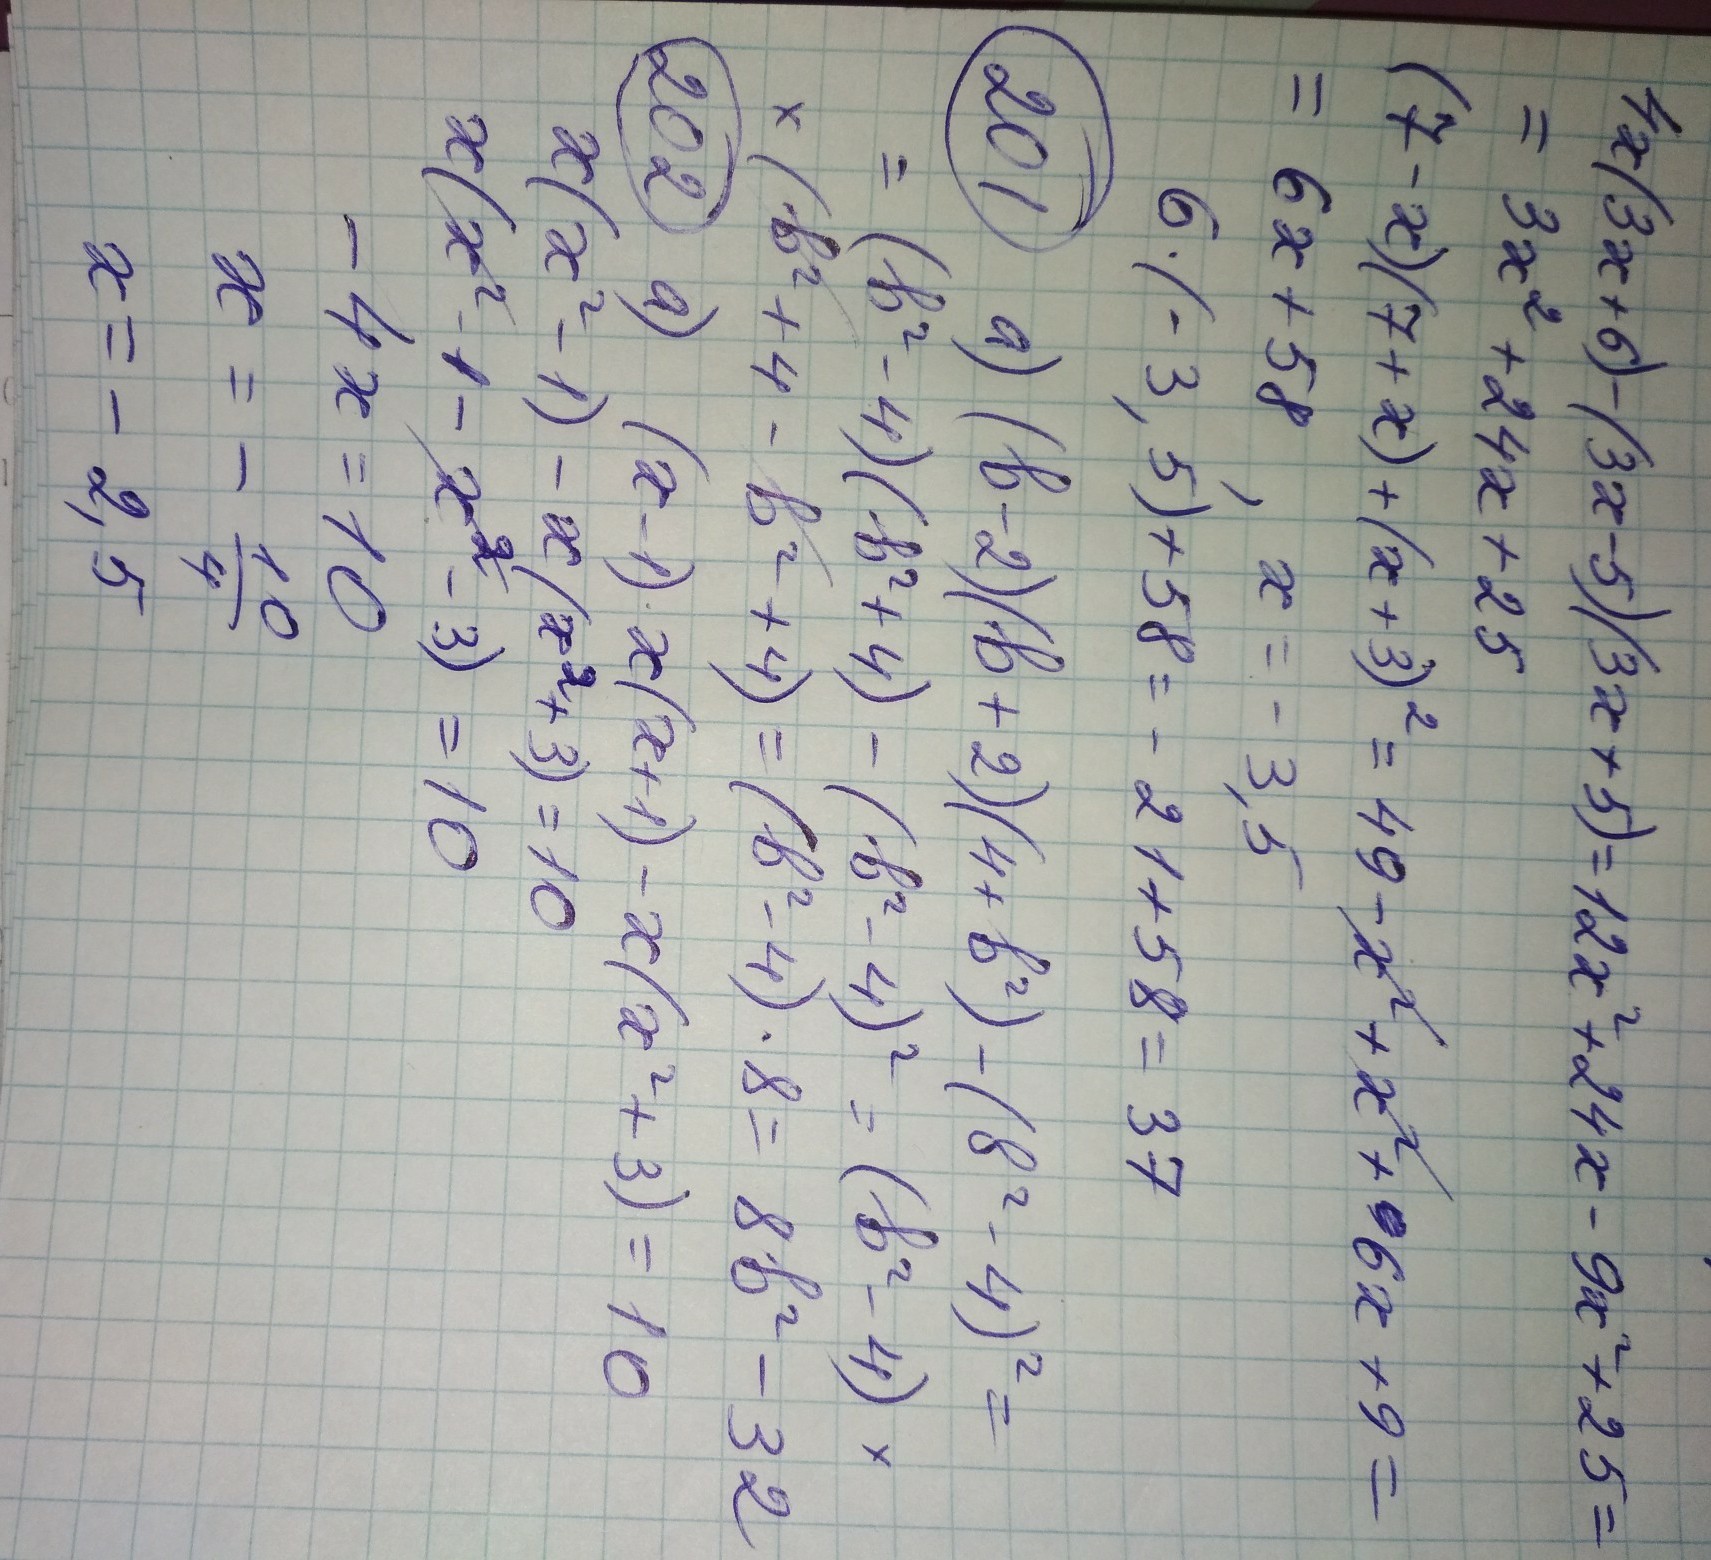 4x(3x+6)-(3x-5)(3x+5)=12x²+24x-9x²+25=
=3x²+24x+25
(7-x)(7+x)+(x+3)²=49-x²+x²+6x+9=
=6x+58, x=-3,5
6·(-3,5)+58=-21+58=37
201 а) (b-2)(b+2)(4+b²)-(b²-4)²=
=(b²-4)(b²+4)-(b²-4)²=(b²-4)×
×(b²+4-b²+4)=(b²-4)·8=8b²-32
202 а) (x-1)·x(x+1)-x(x²+3)=10
x(x²-1)-x(x²+3)=10
x(x²-1-x²-3)=10
-4x=10
x=-10/4
x=-2,5